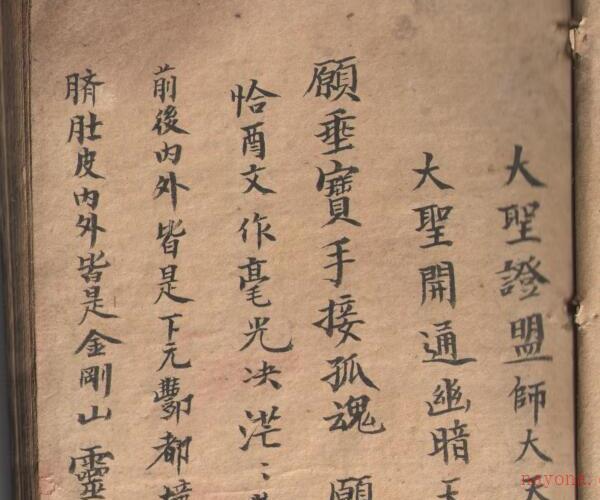 大聖證盟師大
大聖開通幽暗
願垂寶手接孤魂 願
恰酉文作毫光决茫〻
前後内外皆是下元酆都
臍肚皮内外皆是金剛山靈
nayona.